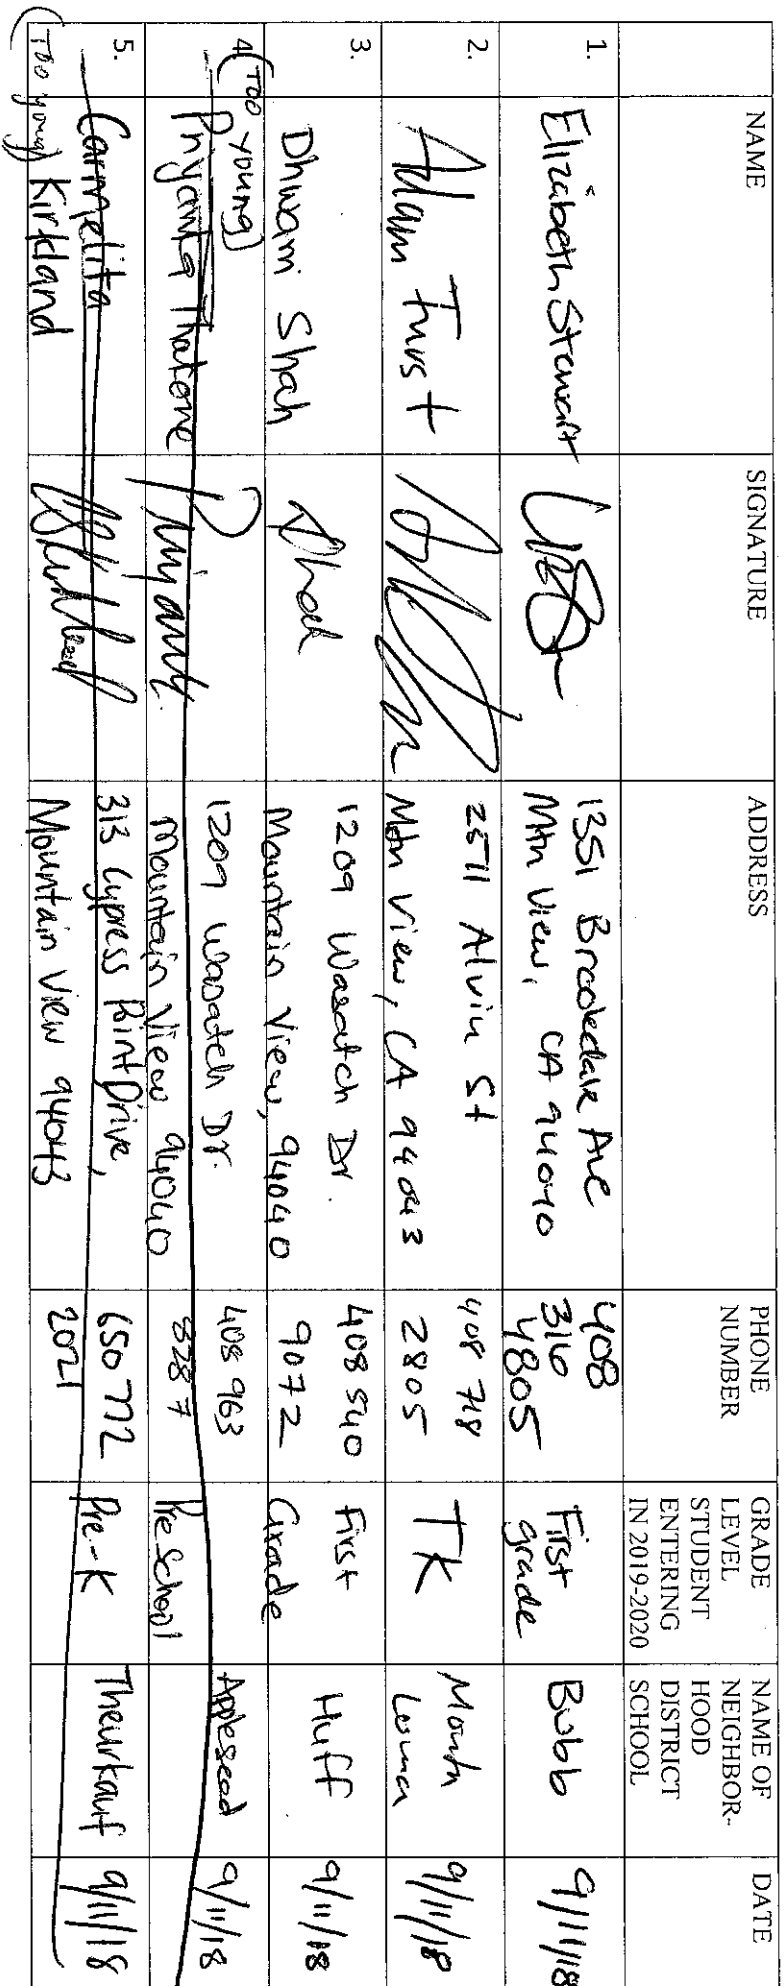 NAME
SIGNATURE
ADDRESS
PHONE
NUMBER
GRADE
LEVEL
STUDENT
ENTERING
IN 2019-2020
NAME OF
NEIGHBOR-
HOOD
DISTRICT
SCHOOL
DATE
1.
Elizabeth Stewart
1351 Brookdale Ave
Mtn View, CA 94040
408
316
4805
First
grade
Bubb
9/11/18
2.
Adam Furst
2511 Alvin St
Mtn View, CA 94043
408 718
2805
TK
Monta
Loma
9/11/18
3.
Dhwani Shah
Shah
1209 Wasatch Dr.
Mountain View, 94040
408 540
9072
First
Grade
Huff
9/11/18
4.
(Too young)
Priyanka Thatone
1209 Wasatch Dr.
Mountain View 94040
408 963
8287
Preschool
Appleseed
9/11/18
5.
Carmelita
(Too young) Kirkland
313 Cypress Point Drive,
Mountain View 94043
650 772
2021
Pre-K
Theurkauf
9/11/18